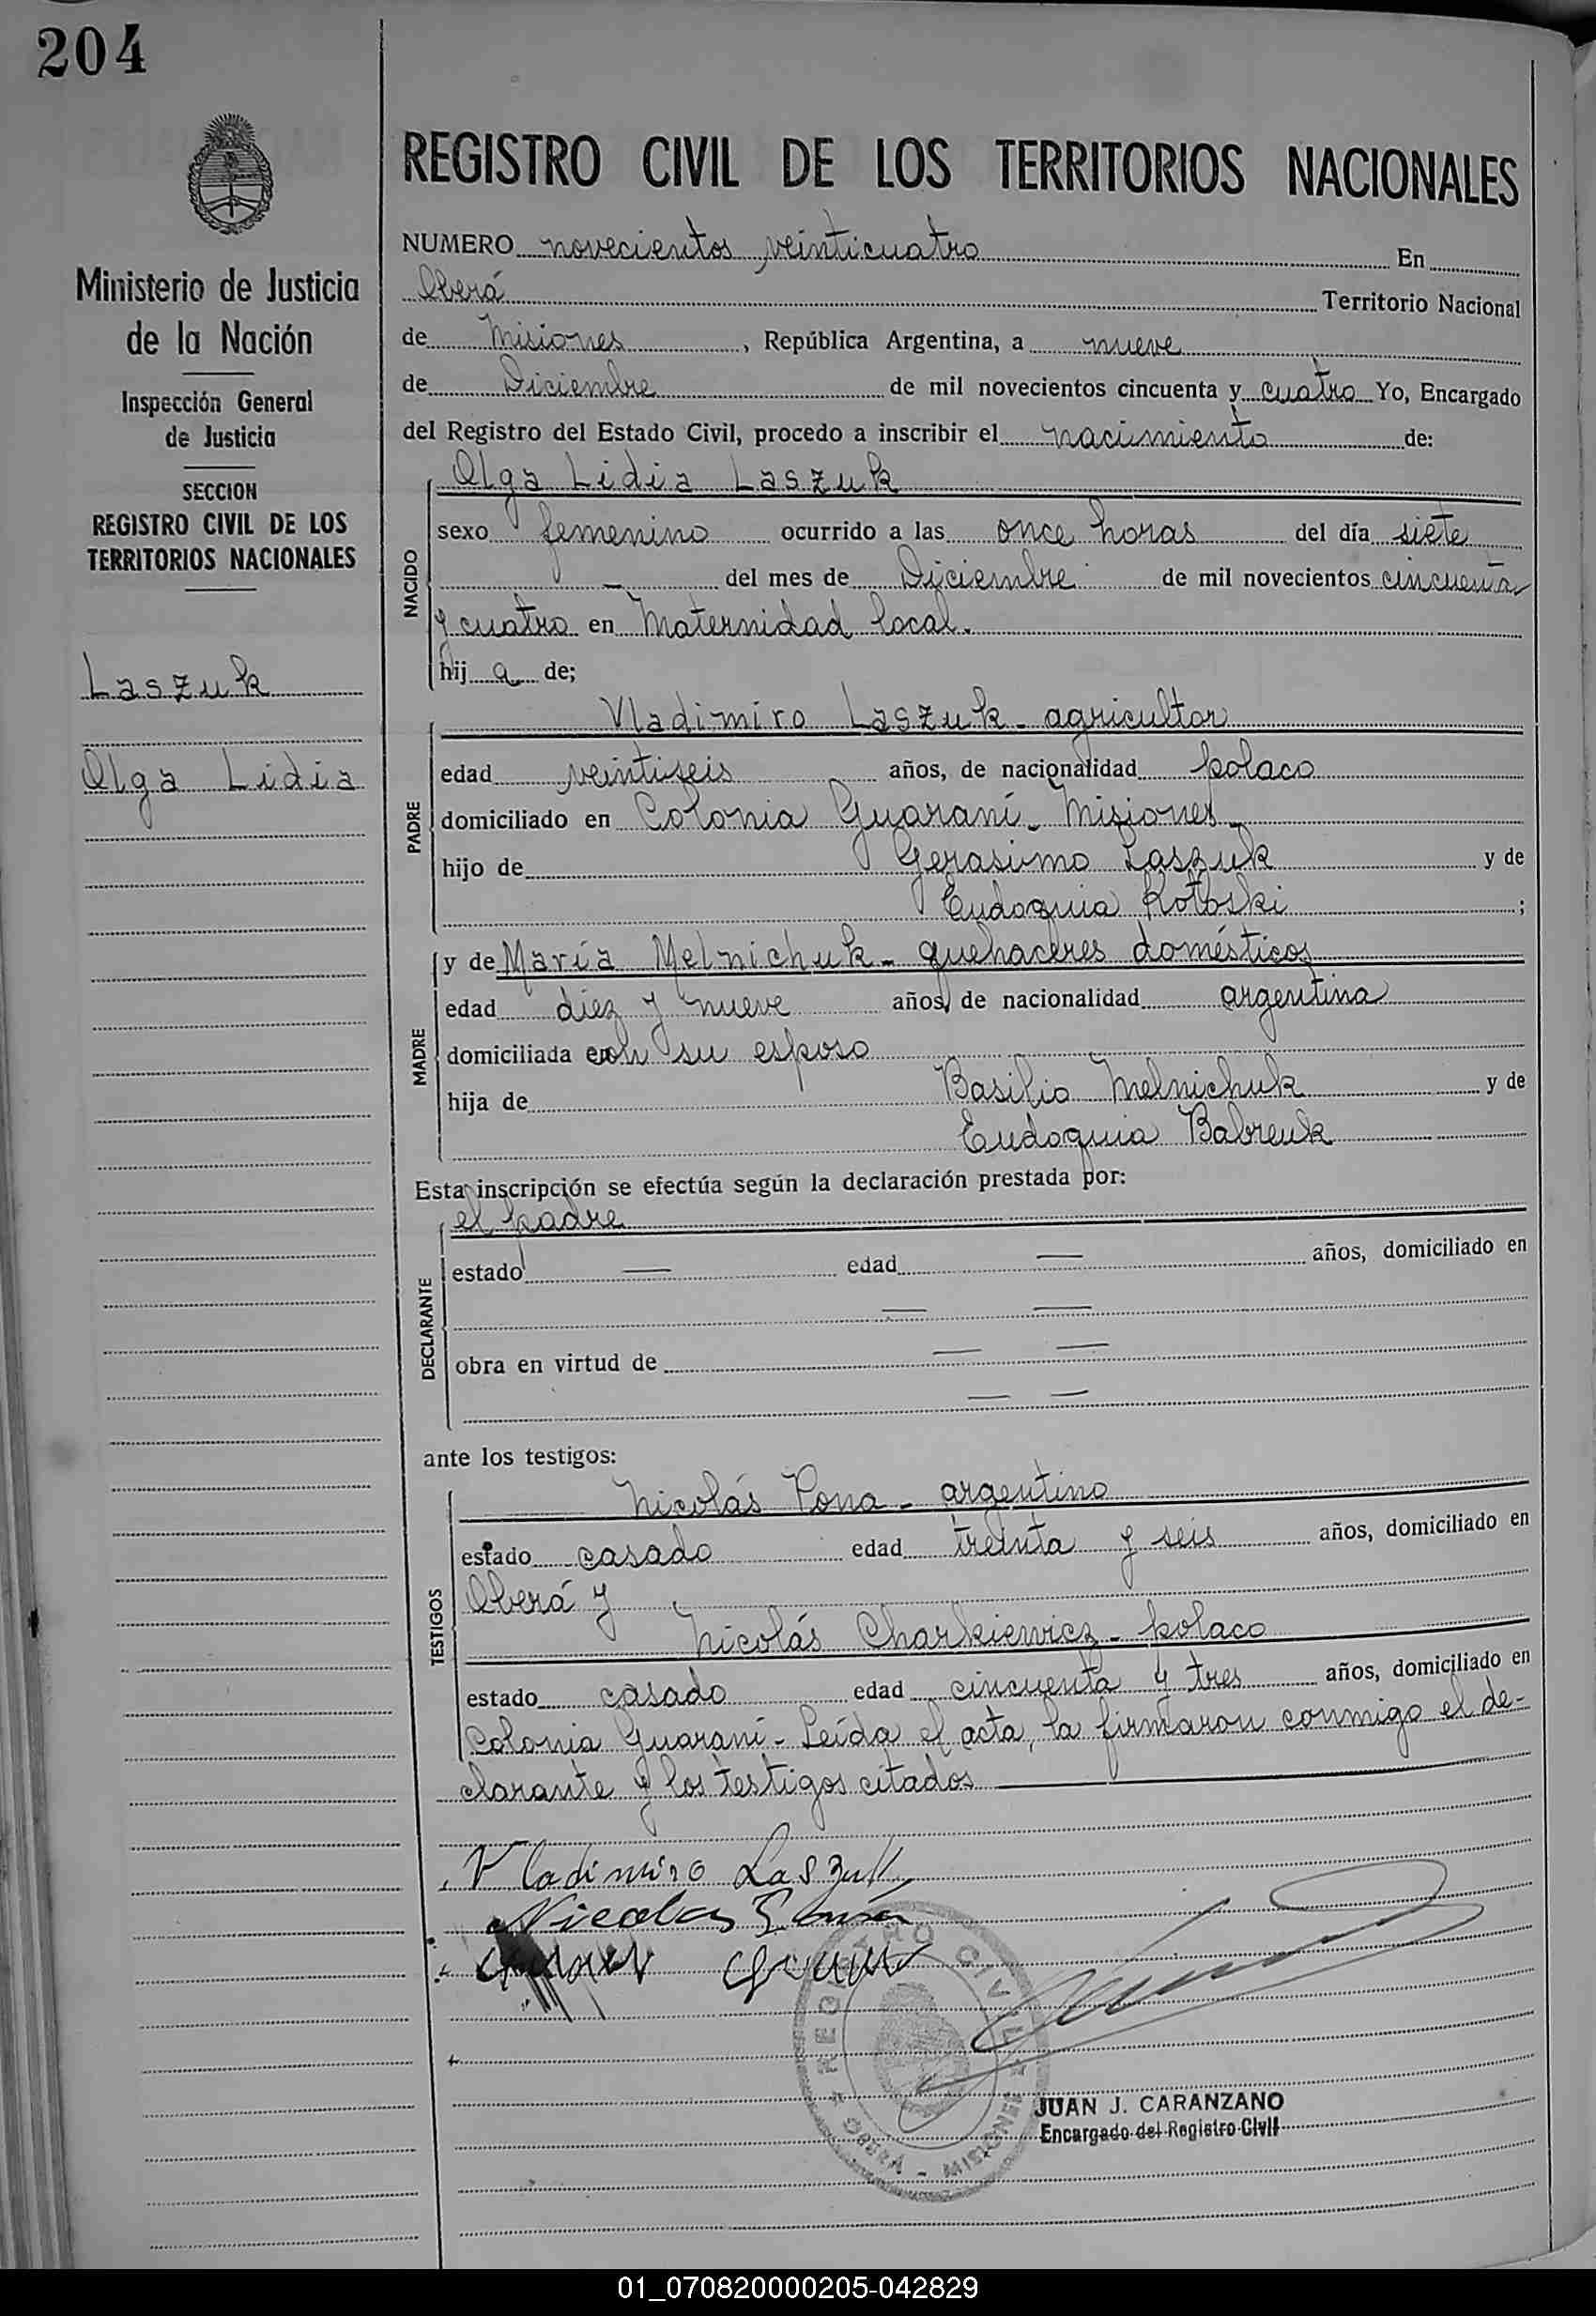 204
REGISTRO CIVIL DE LOS TERRITORIOS NACIONALES
Ministerio de Justicia
de la Nación
Inspección General
de Justicia
SECCION
REGISTRO CIVIL DE LOS
TERRITORIOS NACIONALES
Laszuk
Olga Lidia
NUMERO novecientos veinticuatro En
Oberá Territorio Nacional
de Misiones, República Argentina, a nueve
de Diciembre de mil novecientos cincuenta y cuatro Yo, Encargado
del Registro del Estado Civil, procedo a inscribir el nacimiento de:
NACIDO
Olga Lidia Laszuk
sexo femenino ocurrido a las once horas del día siete
— del mes de Diciembre de mil novecientos cincuenta
y cuatro en Maternidad local.
hija de;
PADRE
Vladimiro Laszuk - agricultor
edad veintiseis años, de nacionalidad polaco
domiciliado en Colonia Guaraní - Misiones -
hijo de Gerasimo Laszuk y de
Eudoquia Kotoski ;
MADRE
y de María Melnichuk - quehaceres domésticos
edad diez y nueve años, de nacionalidad argentina
domiciliada con su esposo
hija de Basilio Melnichuk y de
Eudoquia Babreuk
Esta inscripción se efectúa según la declaración prestada por:
DECLARANTE
el padre
estado — edad — años, domiciliado en
— —
obra en virtud de — —
— —
ante los testigos:
TESTIGOS
Nicolás Pona - argentino
estado casado edad treinta y seis años, domiciliado en
Oberá y
Nicolás Charkiewicz - polaco
estado casado edad cincuenta y tres años, domiciliado en
Colonia Guaraní - Leída el acta, la firmaron conmigo el de-
clarante y los testigos citados
Vladimiro Laszuk
Nicolas
REGISTRO CIVIL
OBERÁ - MISIONES
JUAN J. CARANZANO
Encargado del Registro Civil
01_070820000205-042829